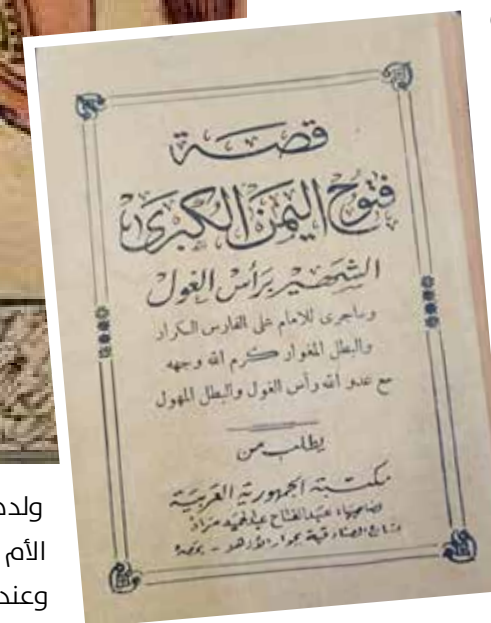 قصة
فتوح اليمن الكبرى
الشهير برأس الغول
وماجرى للامام على الفارس الكرار
والبطل المغوار كرم الله وجهه
مع عدو الله رأس الغول والبطل المهول
يطلب من
مكتبة الجمهورية العربية
لصاحبها عبد الفتاح عبد الحميد مراد
شارع الصنادقية بجوار الأزهر - بمصر
الأم
وعند